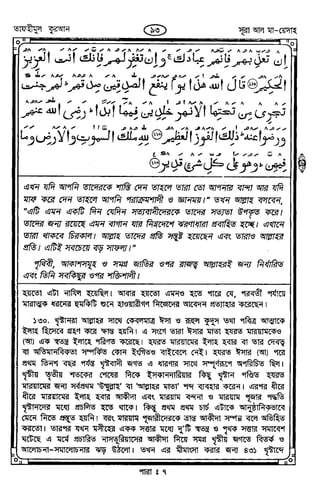 তাফহীমুল কুরআন
৯৩
সূরা আল মা-য়েদাহ
إِنْ تُعَذِّبْهُمْ فَإِنَّهُمْ عِبَادُكَ ۚ وَإِنْ تَغْفِرْ لَهُمْ فَإِنَّكَ أَنْتَ الْعَزِيزُ
الْحَكِيمُ ﴿١١٨﴾ قَالَ اللَّهُ هَٰذَا يَوْمُ يَنْفَعُ الصَّٰدِقِينَ صِدْقُهُمْ ۚ لَهُمْ جَنَّٰتٌ
تَجْرِي مِنْ تَحْتِهَا الْأَنْهَٰرُ خَٰلِدِينَ فِيهَا أَبَدًا ۚ رَضِيَ اللَّهُ عَنْهُمْ
وَرَضُوا عَنْهُ ۚ ذَٰلِكَ الْفَوْزُ الْعَظِيمُ ﴿١١٩﴾ لِلَّهِ مُلْكُ السَّمَٰوَٰتِ وَالْأَرْضِ وَمَا
فِيهِنَّ ۚ وَهُوَ عَلَىٰ كُلِّ شَيْءٍ قَدِيرٌ ﴿١٢٠﴾
এখন যদি আপনি তাদেরকে শাস্তি দেন তাহলে তারা তো আপনার বান্দা আর যদি
মাফ করে দেন তাহলে আপনি পরাক্রমশালী ও জ্ঞানময়।” তখন আল্লাহ বলবেন,
“এটি এমন একটি দিন যেদিন সত্যবাদীদেরকে তাদের সত্যতা উপকৃত করে।
তাদের জন্য রয়েছে এমন বাগান যার নিম্নদেশে ঝরণাধারা প্রবাহিত হচ্ছে। এখানে
তারা থাকবে চিরকাল। আল্লাহ তাদের প্রতি সন্তুষ্ট হয়েছেন এবং তারাও আল্লাহর
প্রতি। এটিই সবচেয়ে বড় সাফল্য।”
পৃথিবী, আকাশসমূহ ও সমগ্র জাতির ওপর রাজত্ব আল্লাহরই জন্য নির্ধারিত
এবং তিনি সবকিছুর ওপর শক্তিশালী।
হয়তো এটা নাযিল হয়েছিল। আবার হয়তো এমনও হতে পারে যে, পরবর্তী পর্যায়ে
মারাত্মক ধরনের হুমকিটি শুনে হাওয়ারীগণ নিজেদের আবেদন প্রত্যাহার করেছেন।
১৩০. খৃষ্টানরা আল্লাহর সাথে কেবলমাত্র ঈসা ও রূহুল কুদুস তথা পবিত্র আত্মাকে
ইলাহ হিসেবে গ্রহণ করে ক্ষান্ত হয়নি। এ সংগে তারা ঈসার মাতা হযরত মারয়ামকেও
(আ) এক স্বতন্ত্র ইলাহে পরিণত করেছে। হযরত মারয়ামের ইলাহ হবার বা তার দেবত্ব
বা অতিমানবিকতা সম্পর্কিত কোন ইংগিতও বাইবেলে নেই। হযরত ঈসার (আ) পরে
প্রথম তিনশ বছর পর্যন্ত খৃষ্টবাদী জগত এ ধারণার সাথে সম্পূর্ণরূপে অপরিচিত ছিল।
খৃষ্টীয় তৃতীয় শতকের শেষের দিকে ইসকানদারিয়ার কিছু খৃষ্টান পণ্ডিত হযরত
মারয়ামের জন্য সর্বপ্রথম ‘উম্মুল্লাহ’ বা ‘আল্লাহর মাতা’ শব্দ ব্যবহার করেন। এরপর ধীরে
ধীরে মারয়ামের ইলাহ হবার আকীদা এবং মারয়াম বন্দনা ও মারয়াম পূজার পদ্ধতি
খৃষ্টানদের মধ্যে প্রচলিত হতে থাকে। কিন্তু প্রথম প্রথম চার্চ এটাকে আনুষ্ঠানিকভাবে
মেনে নিতে প্রস্তুত হয়নি। বরং মারয়াম পূজারীদেরকে ভ্রান্ত আকীদা সম্পন্ন বলে অভিহিত
করতো। তারপর যখন মসীহের একক সত্তার মধ্যে দু’টি স্বতন্ত্র ও পৃথক সত্তার সমাবেশ
ঘটেছে এ মর্মে প্রচারিত নাসতুরিয়াসের আকীদা নিয়ে সমগ্র খৃষ্টীয় জগতে বিতর্ক ও
আলোচনা-সমালোচনার ঝড় উঠলো। তখন এর মীমাংসা করার জন্য ৪৩১ খৃষ্টাব্দে
পারা ঃ ৭